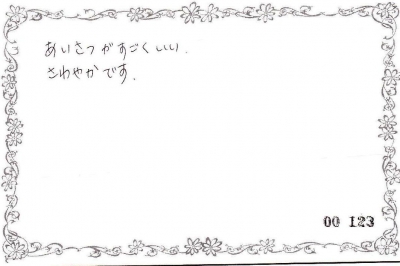 あいさつがすごくいい.
さわやかです.
00 123